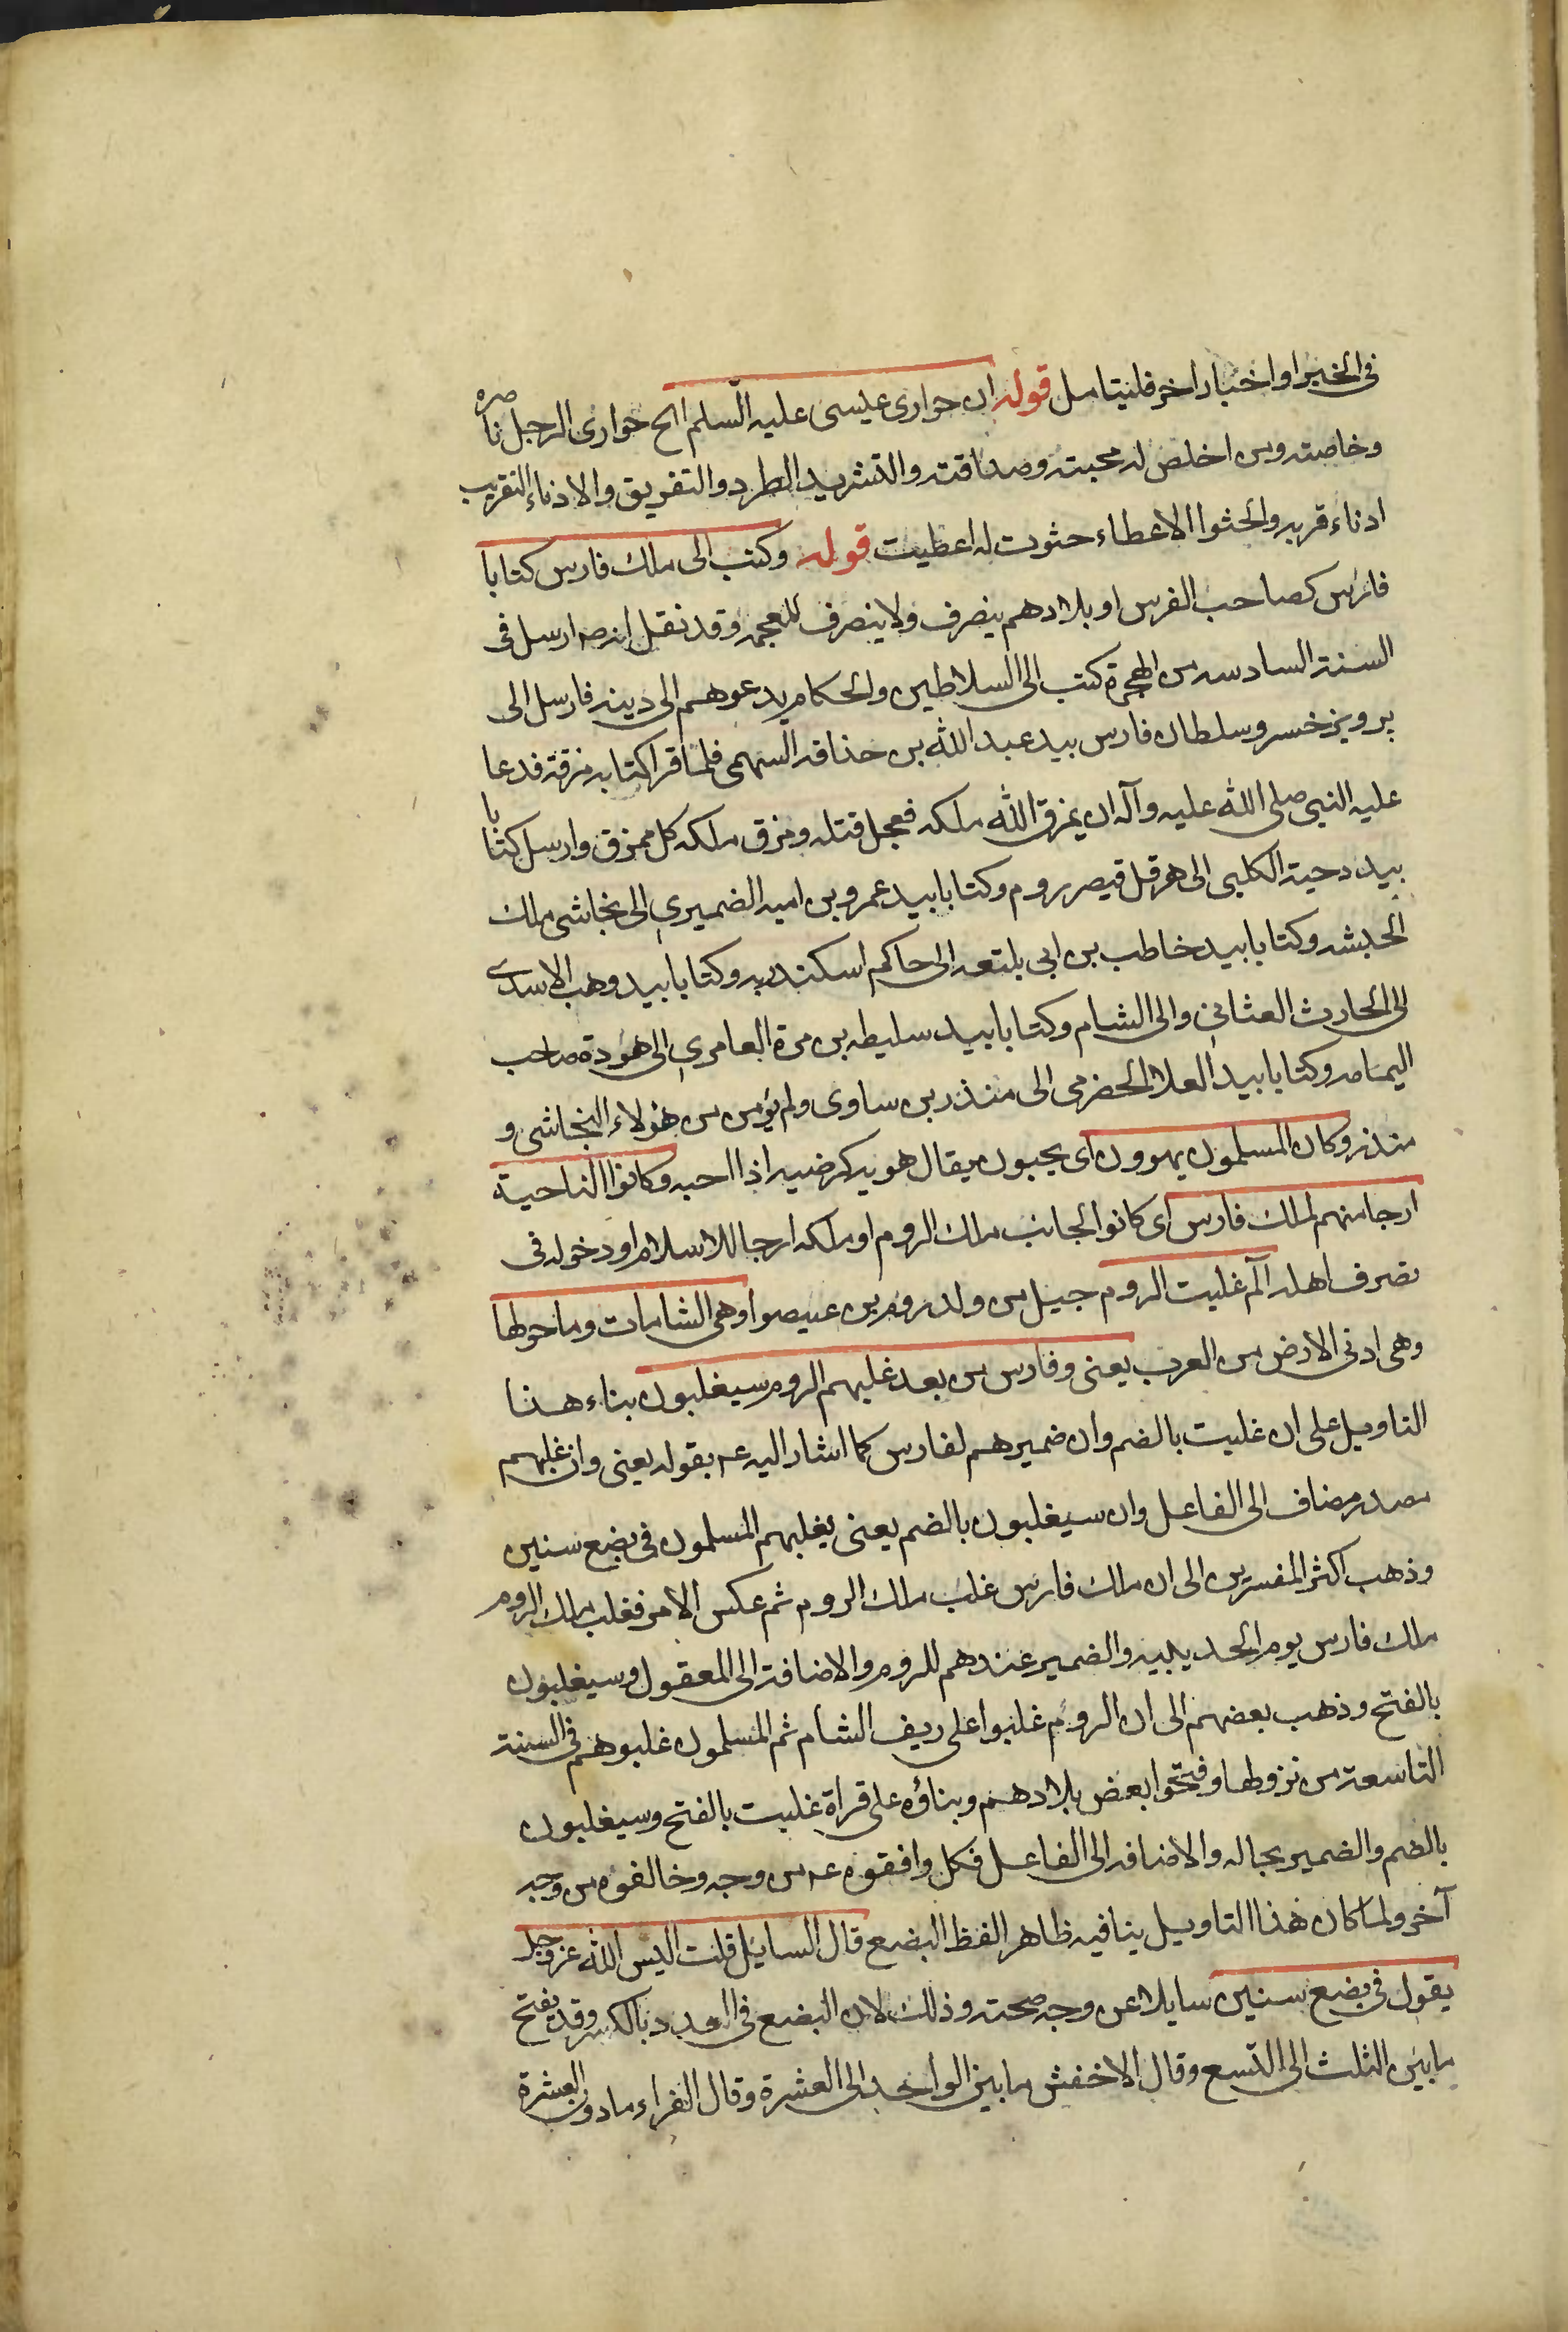 في الخبر او اخبار اخر فليتامل قوله ان حواري عيسى عليه السلم الخ حواري الرجل ناصره
وخاصته ومن اخلص له محبته وصداقته والتشريد الطرد والتفريق والادناء التقريب
ادناه قربه والحثوا الاعطاء حثوت له اعطيت قوله وكتب الى ملك فارس كتابا
فارس كصاحب الفرس او بلادهم ينصرف ولا ينصرف للعجمه وقد نقل انه صه ارسل في
السنة السادسه من الهجرة كتب الى السلاطين والحكام يدعوهم الى دينه فارسل الى
پرويز خسرو سلطان فارس بيد عبد الله بن حذاقه السهمي فلما قرا كتابه مزقه فدعا
عليه النبي صلى الله عليه وآله ان يمزق الله ملكه فعجل قتله ومزق ملكه كل ممزق وارسل كتابا
بيد دحية الكلبي الى هرقل قيصر روم وكتابا بيد عمرو بن اميه الضميري الى نجاشي ملك
الحبشه وكتابا بيد خاطب بن ابي بلتعه الى حاكم اسكندريه وكتابا بيد وهب الاسدي
الى الحارث العثاني والى الشام وكتابا بيد سليطه بن مرة العامري الى هوذة صاحب
اليمامه وكتابا بيد العلا الحضرمي الى منذر بن ساوى ولم يؤمن من هؤلاء النجاشي و
منذر وكان المسلمون يهوون اى يحبون يقال هويه كرضيه اذا احبه وكانوا الناحية
ارجا منهم لملك فارس اى كانوا لجانب ملك الروم او ملكه ارجا للاسلام او دخوله في
تصرف اهله الم غلبت الروم جيل من ولد روم بن عيصو وهى الشامات وما حولها
وهى ادنى الارض من العرب يعنى وفارس من بعد غلبهم الروم سيغلبون بناء هذا
التاويل على ان غلبت بالضم وان ضمير هم لفارس كما اشار اليه عه بقوله يعنى وان غلبهم
مصدر مضاف الى الفاعل وان سيغلبون بالضم يعنى يغلبهم المسلمون في بضع سنين
وذهب اكثر المفسرين الى ان ملك فارس غلب ملك الروم ثم عكس الامر فغلب ملك الروم
ملك فارس يوم الحديبيه والضمير عندهم للروم والاضافة الى المعقول وسيغلبون
بالفتح وذهب بعضهم الى ان الروم غلبوا على ريف الشام ثم المسلمون غلبوهم في السنة
التاسعة من نزولها وفتحوا بعض بلادهم وبناؤه على قراة غلبت بالفتح وسيغلبون
بالضم والضمير بحاله والاضافه الى الفاعل فكل وافقوه عه من وجه وخالفوه من وجه
آخر ولما كان هذا التاويل ينافيه ظاهر الفظ البضع قال السايل قلت اليس الله عز وجل
يقول في بضع سنين سايلا عن وجه صحته وذلك لان البضع في العدد بالكسر وقد يفتح
ما بين الثلث الى التسع وقال الاخفش ما بين الواحد الى العشرة وقال الفراء ما دون العشرة